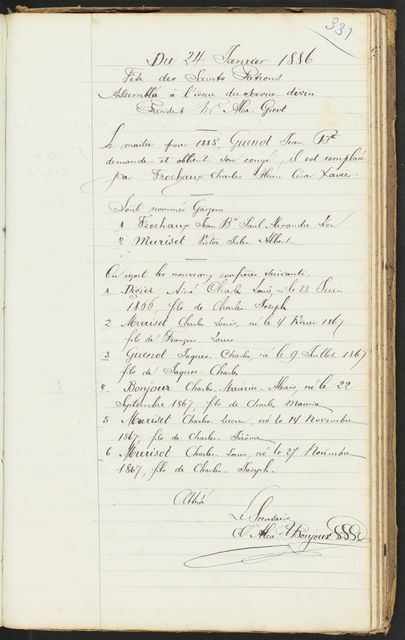 331
Du 24 Janvier 1886
Fête des Saints Patrons
Assemblée à l'issue du service divin
Président Mr Alex. Girot
Le maître pour 1885, Guenot Jean Bte
demande et obtient son congé, il est remplacé
par Frochaux Charles Henri César Xavier
Sont nommés Garçons
1 Frochaux Jean Bte Paul Alexandre Léon
2 Muriset Victor Jules Albert
On reçoit les nouveaux confrères suivants
1 Aimé Charles Louis, né le 23 Juin
1866, fils de Charles Joseph
2 Muriset Charles Louis, né le 4 Février 1867
fils de François Louis
3 Guenot Jaques Charles, né le 9 Juillet 1867
fils de Jaques Charles
4 Bonjour Charles Maurice Alexis, né le 22
Septembre 1867, fils de Charles Maurice
5 Muriset Charles Lucien, né le 14 Novembre
1867, fils de Charles Jérôme
6 Muriset Charles Louis né le 27 Novembre
1867, fils de Charles Joseph.
Le Secrétaire
Bonjour